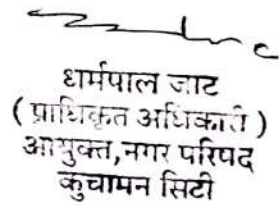 धर्मपाल जाट
( प्राधिकृत अधिकारी )
आयुक्त,नगर परिषद
कुचामन सिटी